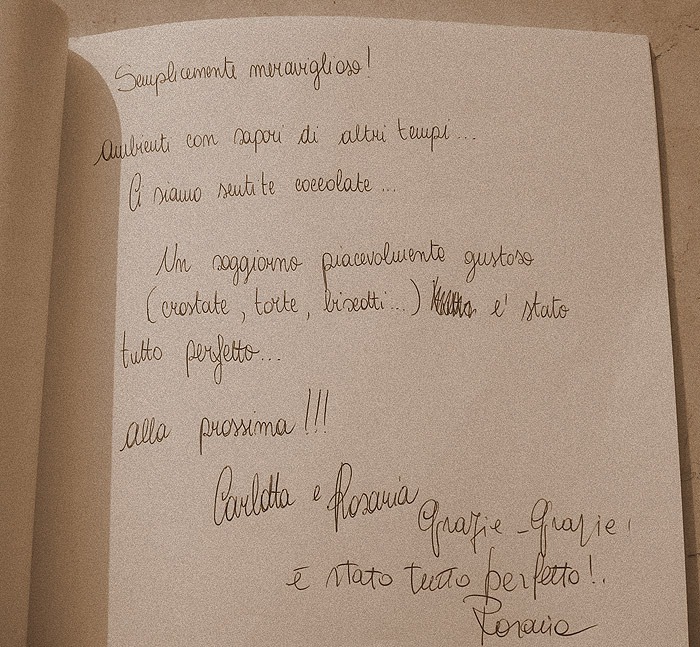 Semplicemente meraviglioso!
Ambienti con sapori di altri tempi...
Ci siamo sentite coccolate...
Un soggiorno piacevolmente gustoso
(crostate, torte, biscotti...) è stato
tutto perfetto...
alla prossima!!!
Carlotta e Rosaria
Grazie - Grazie!
è stato tutto perfetto!.
Rosaria